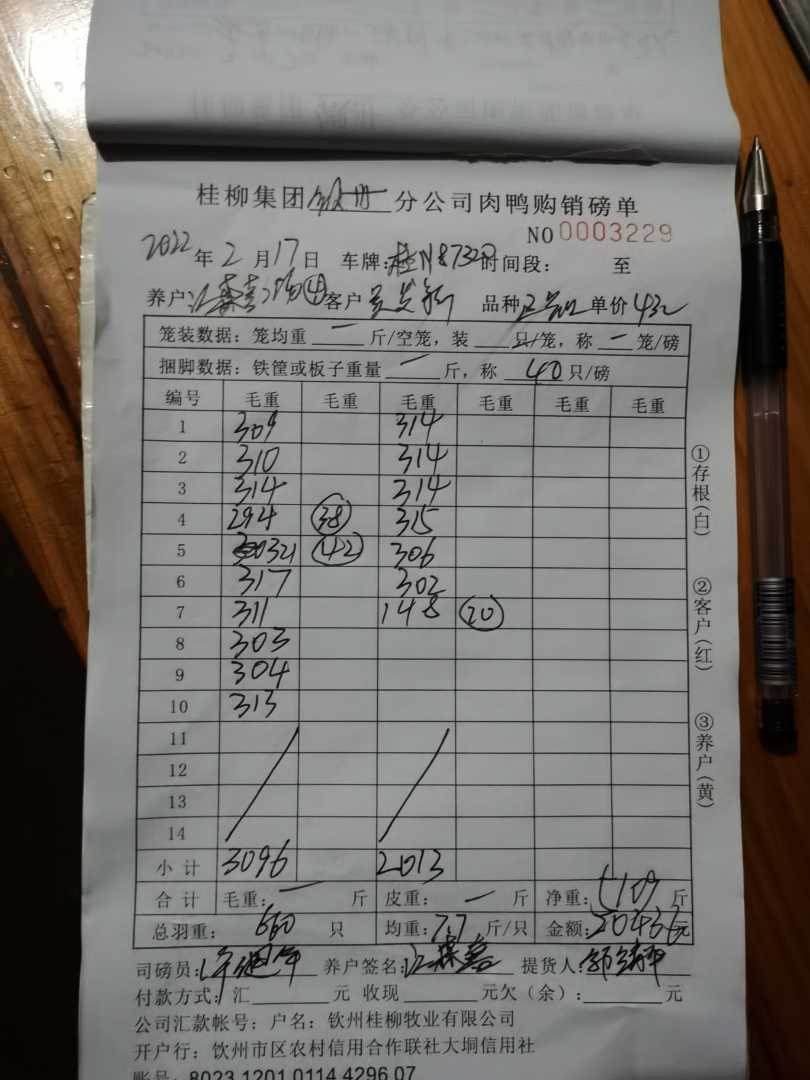 桂柳集团 分公司肉鸭购销磅单
NO 0003229
2022年2月17日 车牌: 8732 时间段: 至
养户 ④客户 品种 单价4元
笼装数据: 笼均重 一 斤/空笼, 装 只/笼, 称 一 笼/磅
捆脚数据: 铁筐或板子重量 一 斤, 称 40 只/磅
编号 毛重 毛重 毛重 毛重 毛重 毛重
1 309 314
2 310 314
3 314 314
4 294 38 315
5 321 42 306
6 317 302
7 311 148 20
8 303
9 304
10 313
11
12
13
14
小计 3096 2013
合计 毛重: 一 斤 皮重: 一 斤 净重: 5109 斤
总羽重: 660 只 均重: 7.7 斤/只 金额: 20436元
司磅员: 养户签名: 江森喜 提货人:
付款方式: 汇 元 收现 元欠(余): 元
公司汇款帐号: 户名: 钦州桂柳牧业有限公司
开户行: 钦州市区农村信用合作联社大垌信用社
账号: 8023 1201 0114 4296 07
①存根(白)
②客户(红)
③养户(黄)